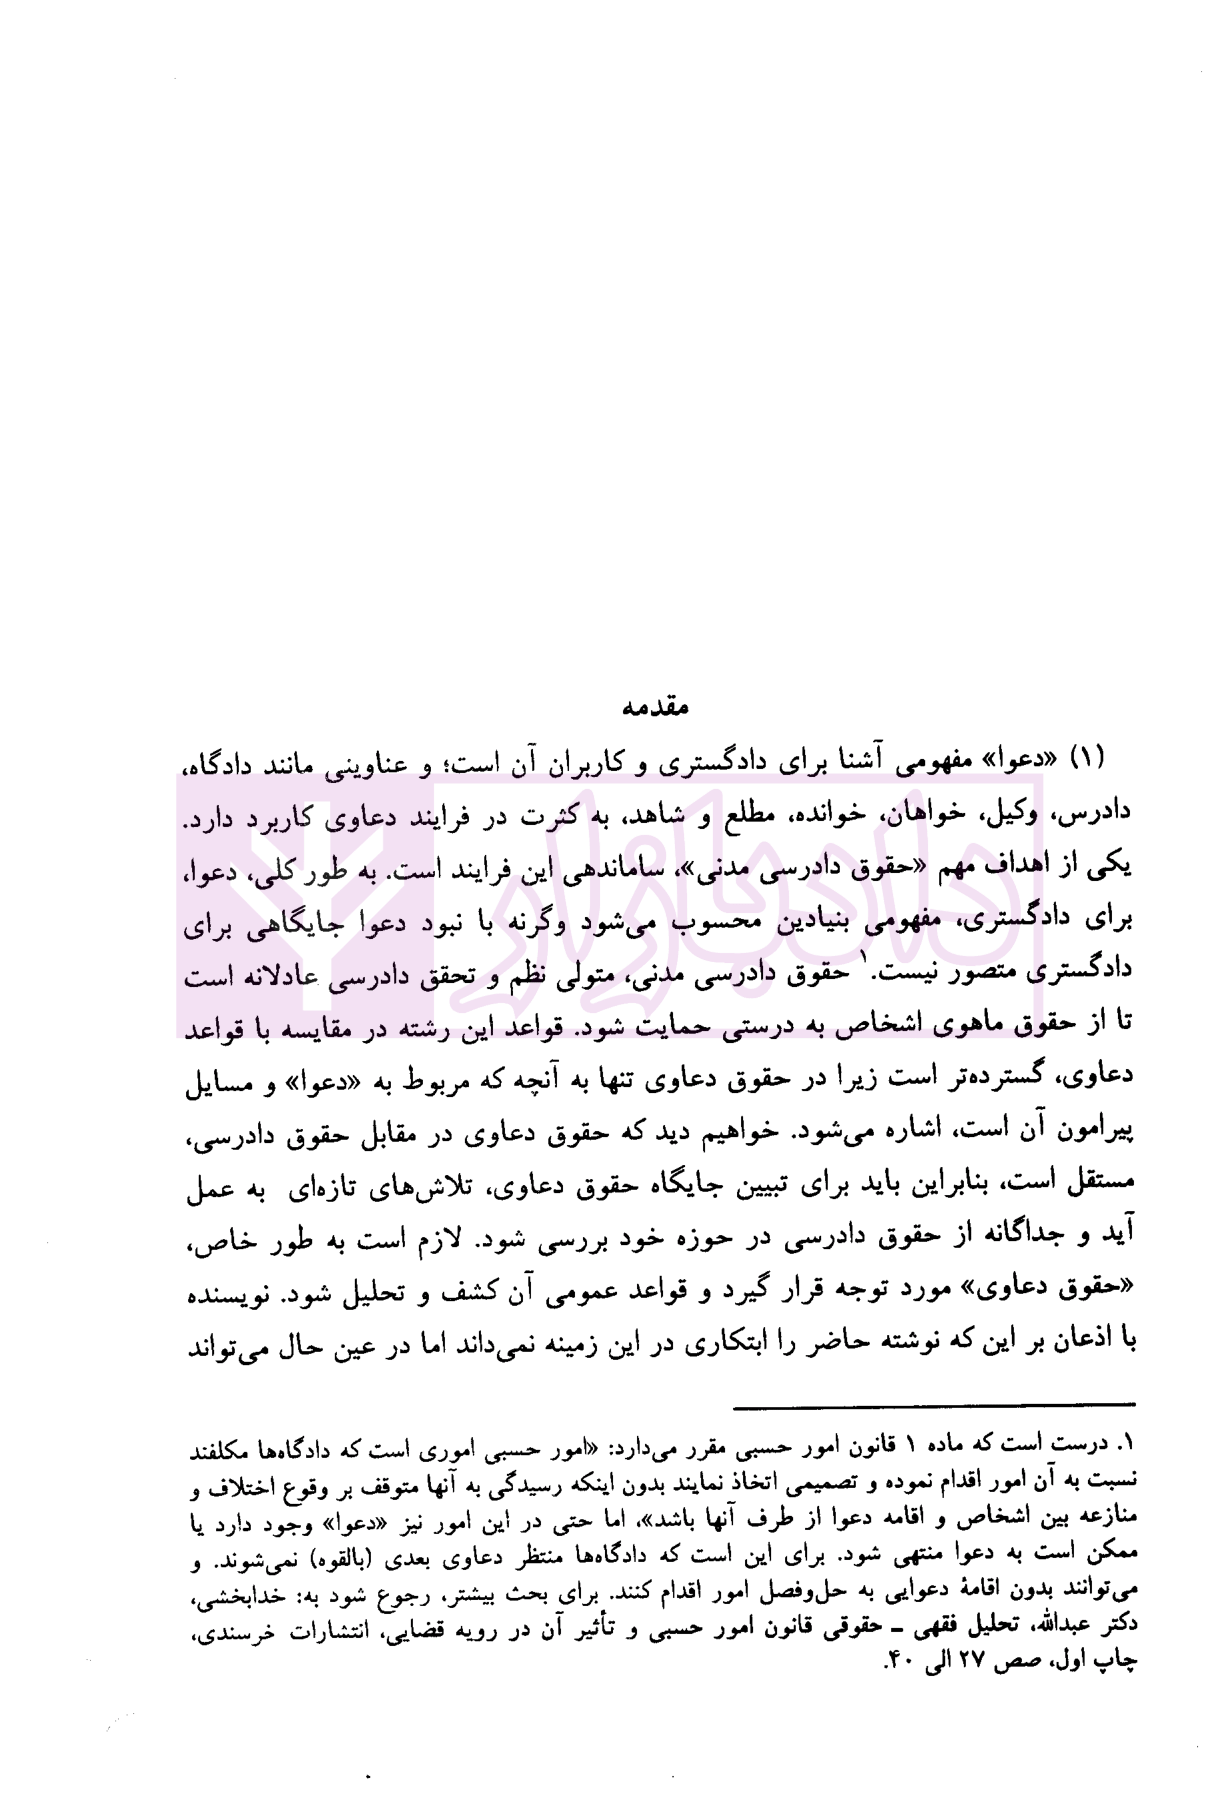 مقدمه
(۱) «دعوا» مفهومی آشنا برای دادگستری و کاربران آن است؛ و عناوینی مانند دادگاه،
دادرس، وکیل، خواهان، خوانده، مطلع و شاهد، به کثرت در فرایند دعاوی کاربرد دارد.
یکی از اهداف مهم «حقوق دادرسی مدنی»، ساماندهی این فرایند است. به طور کلی، دعوا،
برای دادگستری، مفهومی بنیادین محسوب می‌شود وگرنه با نبود دعوا جایگاهی برای
دادگستری متصور نیست.۱ حقوق دادرسی مدنی، متولی نظم و تحقق دادرسی عادلانه است
تا از حقوق ماهوی اشخاص به درستی حمایت شود. قواعد این رشته در مقایسه با قواعد
دعاوی، گسترده‌تر است زیرا در حقوق دعاوی تنها به آنچه که مربوط به «دعوا» و مسایل
پیرامون آن است، اشاره می‌شود. خواهیم دید که حقوق دعاوی در مقابل حقوق دادرسی،
مستقل است، بنابراین باید برای تبیین جایگاه حقوق دعاوی، تلاش‌های تازه‌ای به عمل
آید و جداگانه از حقوق دادرسی در حوزه خود بررسی شود. لازم است به طور خاص،
«حقوق دعاوی» مورد توجه قرار گیرد و قواعد عمومی آن کشف و تحلیل شود. نویسنده
با اذعان بر این که نوشته حاضر را ابتکاری در این زمینه نمی‌داند اما در عین حال می‌تواند
۱. درست است که ماده ۱ قانون امور حسبی مقرر می‌دارد: «امور حسبی اموری است که دادگاه‌ها مکلفند
نسبت به آن امور اقدام نموده و تصمیمی اتخاذ نمایند بدون اینکه رسیدگی به آنها متوقف بر وقوع اختلاف و
منازعه بین اشخاص و اقامه دعوا از طرف آنها باشد»، اما حتی در این امور نیز «دعوا» وجود دارد یا
ممکن است به دعوا منتهی شود. برای این است که دادگاه‌ها منتظر دعاوی بعدی (بالقوه) نمی‌شوند. و
می‌توانند بدون اقامهٔ دعوایی به حل‌وفصل امور اقدام کنند. برای بحث بیشتر، رجوع شود به: خدابخشی،
دکتر عبدالله، تحلیل فقهی ـ حقوقی قانون امور حسبی و تأثیر آن در رویه قضایی، انتشارات خرسندی،
چاپ اول، صص ۲۷ الی ۴۰.
دادبازار